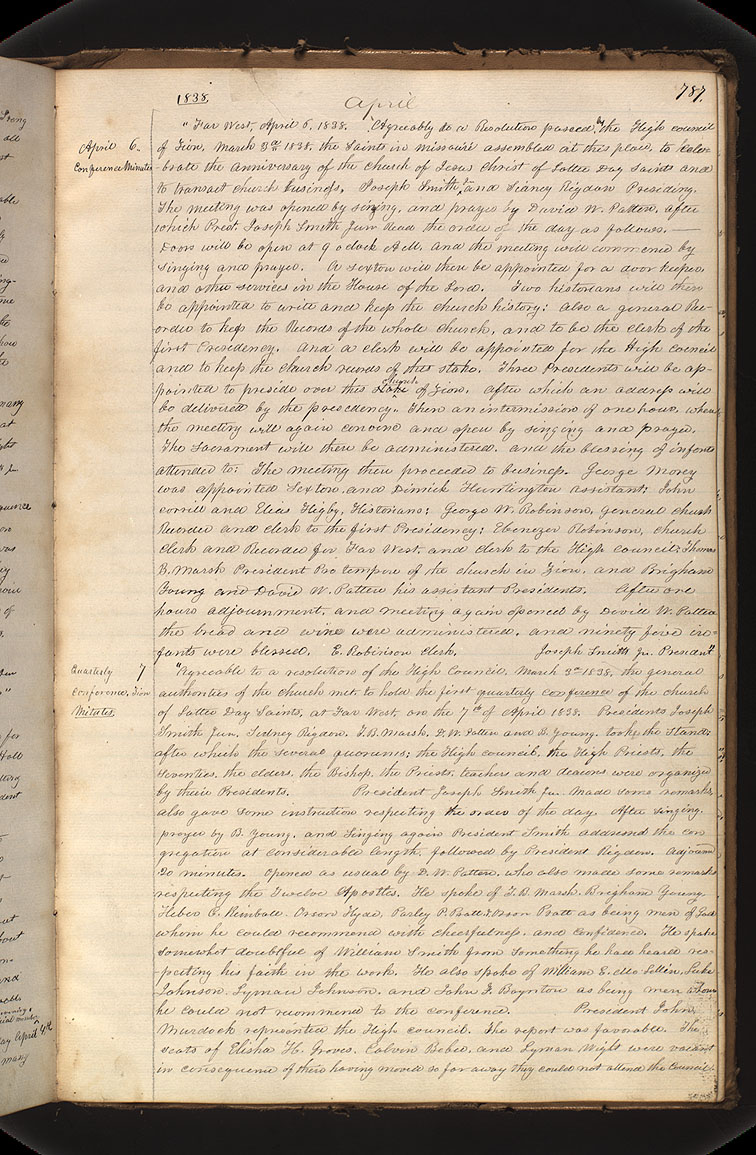 1838.
April
787.
April 6.
Conference Minutes
"Far West, April 6. 1838. Agreeably to a Resolution passed by the High council
of Zion, March 3rd 1838, the Saints in missouri assembled at this place, to cele-
brate the anniversary of the church of Jesus Christ of Latter Day Saints and
to transact church business, Joseph Smith, and Sidney Rigdon Presiding.
The meeting was opened by singing, and prayer by David W. Patten, after
which Prest. Joseph Smith Jun Read the order of the day as follows.—
Doors will be open at 9 o clock A.M. and the meeting will commence by
singing and prayer. A sexton will then be appointed for a door keeper,
and other services in the House of the Lord. Two historians will then
be appointed to write and keep the church history; also a general Rec-
order to keep the Records of the whole church, and to be the clerk of the
first Presidency. And a clerk will be appointed for the High council
and to keep the church records of this stake. Three Presidents will be ap-
pointed to preside over this church of Zion, after which an address will
be delivered by the presidency. Then an intermission of one hour, when
the meeting will again convene and open by singing and prayer.
The Sacrament will then be administered, and the blessing of infants
attended to: The meeting then proceeded to business. George Morey
was appointed Sexton, and Dimick Huntington assistant; John
corrill and Elias Higby, Historians; George W. Robinson, general church
Recorder and clerk to the first Presidency; Ebenezer Robinson, church
Clerk and Recorder for Far West, and clerk to the High council; Thomas
B. Marsh President Pro tempore of the church in Zion, and Brigham
Young and David W. Patten his assistant Presidents. After one
hours adjournment, and meeting again opened by David W. Patten
the bread and wine were administered, and ninety five in-
fants were blessed. E. Robinson Clerk. Joseph Smith Jr. President."
Quarterly 7
Conference, Zion
Minutes.
"Agreeable to a resolution of the High Council, March 3rd 1838, the general
authorities of the church met, to hold the first quarterly conference of the church
of Latter Day Saints, at Far West, on the 7th of April 1838. Presidents Joseph
Smith Jun, Sidney Rigdon, T. B. Marsh, D. W. Patten and B. Young, took the Stand;
after which the several quorums; the High council, the High Priests, the
Seventies, the elders, the Bishop, the Priests, teachers and deacons were organized
by their Presidents. President Joseph Smith Jun. made some remarks,
also gave some instruction respecting the order of the day. After singing,
prayer by B. Young, and singing again President Smith addressed the con
gregation at considerable length, followed by President Rigdon. Adjourned
20 minutes. Opened as usual by D. W. Patten, who also made some remarks
respecting the Twelve Apostles. He spoke of T. B. Marsh, Brigham Young,
Heber C. Kimball, Orson Hyde, Parley P. Pratt & Orson Pratt as being men of God
whom he could recommend with cheerfulness, and confidence. He spoke
somewhat doubtful of William Smith from something he had heard res-
pecting his faith in the work. He also spoke of William E. Mc Lellin, Luke
Johnson, Lyman Johnson, and John F. Boynton as being men whom
he could not recommend to the conference. President John
Murdock represented the High council. The report was favorable. The
seats of Elisha H. Groves, Calvin Bebee, and Lyman Wight were vacant
in consequence of their having moved so far away they could not attend the council.